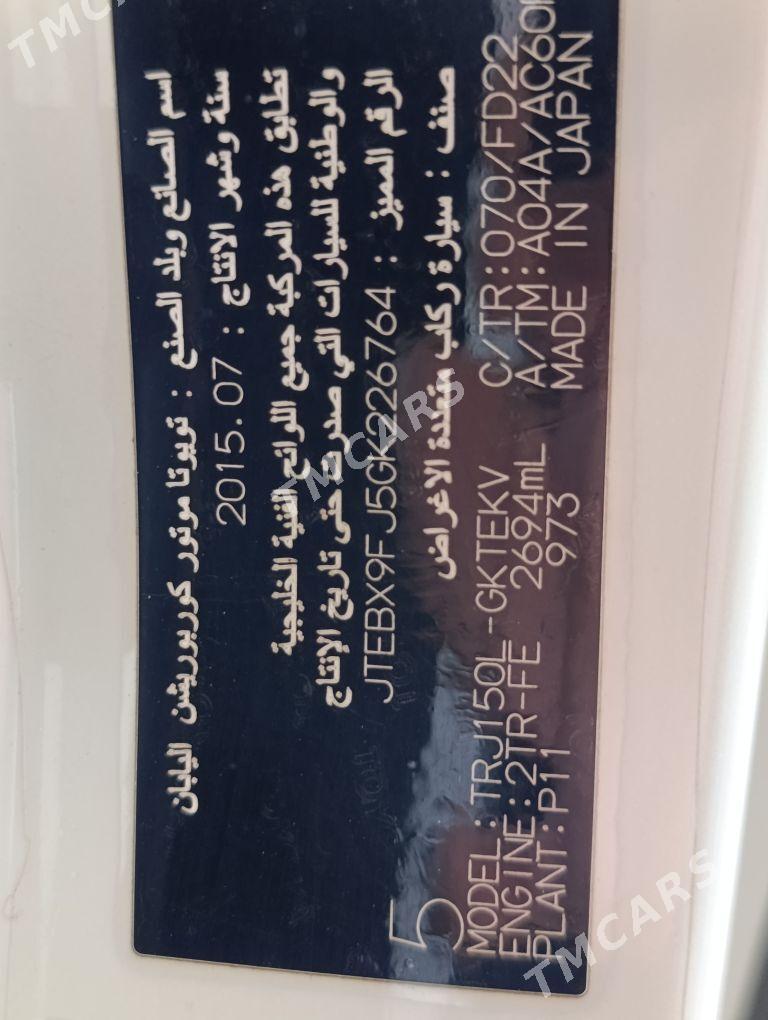 اسم الصانع وبلد الصنع : تويوتا موتور كوربوريشن اليابان
سنة وشهر الانتاج : 2015.07
تطابق هذه المركبة جميع اللوائح الفنية الخليجية
والوطنية للسيارات التي صدرت حتى تاريخ الإنتاج
الرقم المميز : JTEBX9FJ5GK226764
صنف : سيارة ركاب متعددة الاغراض
5
MODEL:TRJ150L-GKTEKV C/TR:070/FD22
ENGINE:2TR-FE 2694mL A/TM:A04A/AC60
PLANT:P11 973 MADE IN JAPAN
TMCARS
TMCARS
TMCARS